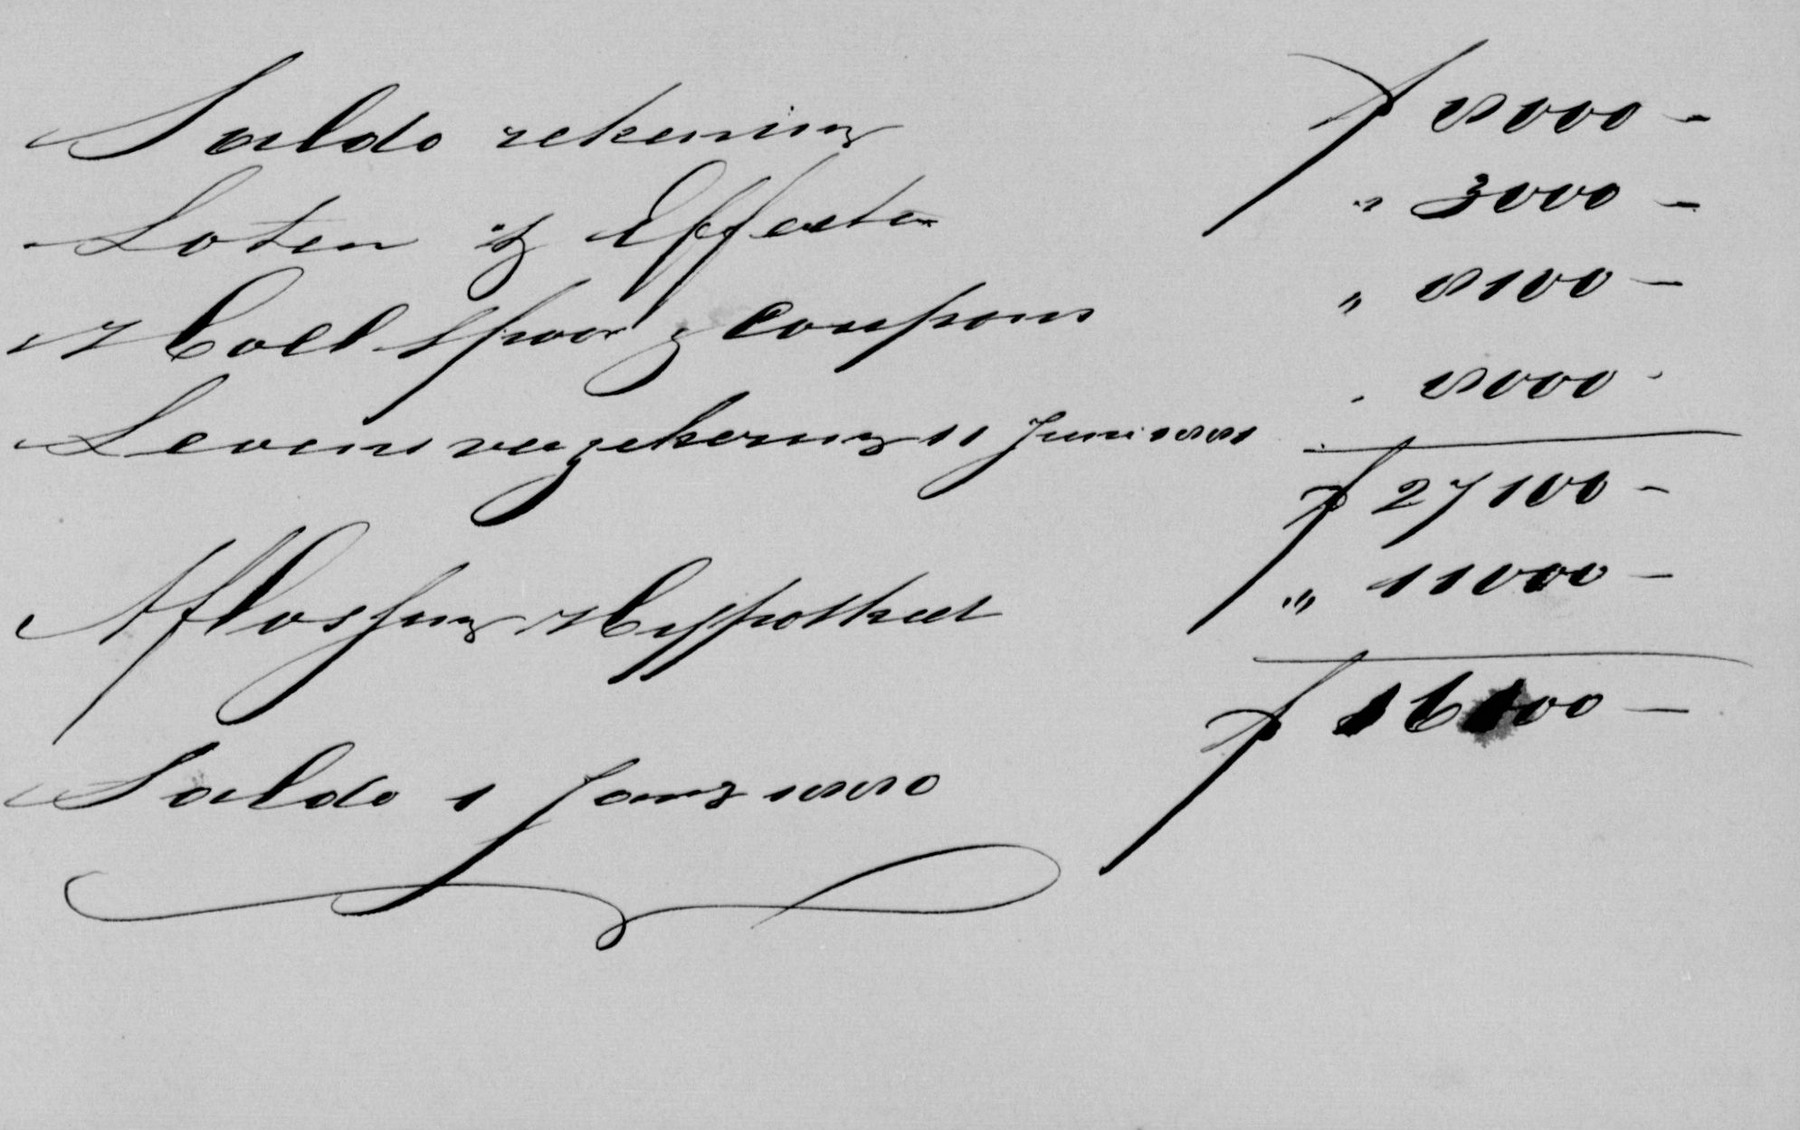 Saldo rekening ƒ 8000 -
Loten & Effecten " 3000 -
Holl Spoor & Coupons " 8100 -
Levensverzekering 11 Juni 1881 " 8000 -
ƒ 27100 -
Aflossing Hypotheek " 11000 -
ƒ 16100 -
Saldo 1 Jany 1880